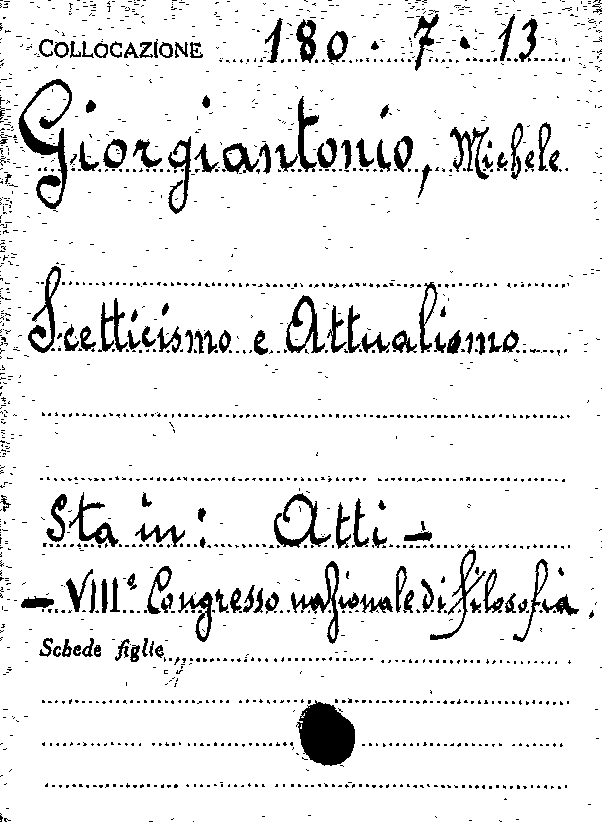 COLLOCAZIONE 180 · 7 · 13
Giorgiantonio, Michele
Scetticismo e Attualismo
Sta in: Atti –
– VIIIº Congresso nazionale di filosofia.
Schede figlie